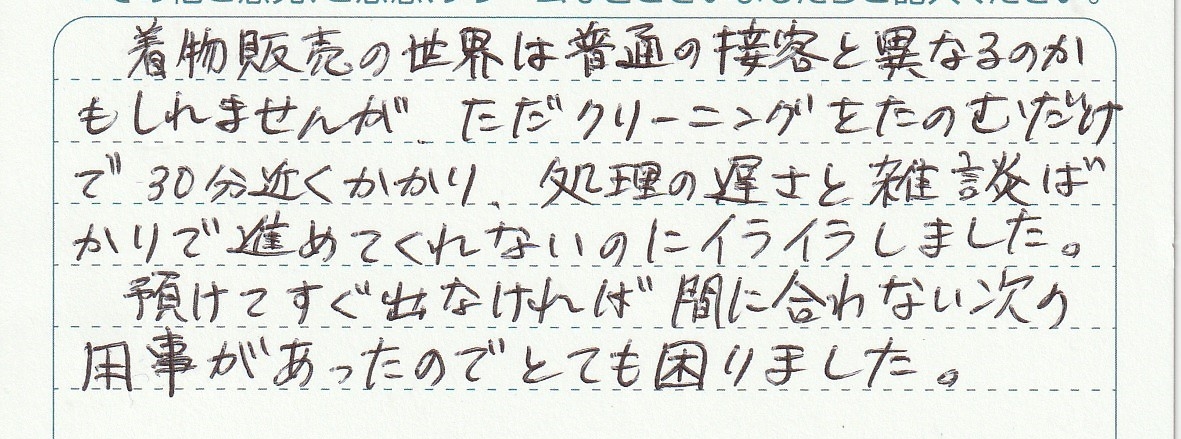 着物販売の世界は普通の接客と異なるのか
もしれませんが、ただクリーニングをたのむだけ
で30分近くかかり、処理の遅さと雑談ば
かりで進めてくれないのにイライラしました。
預けてすぐ出なければ間に合わない次の
用事があったのでとても困りました。